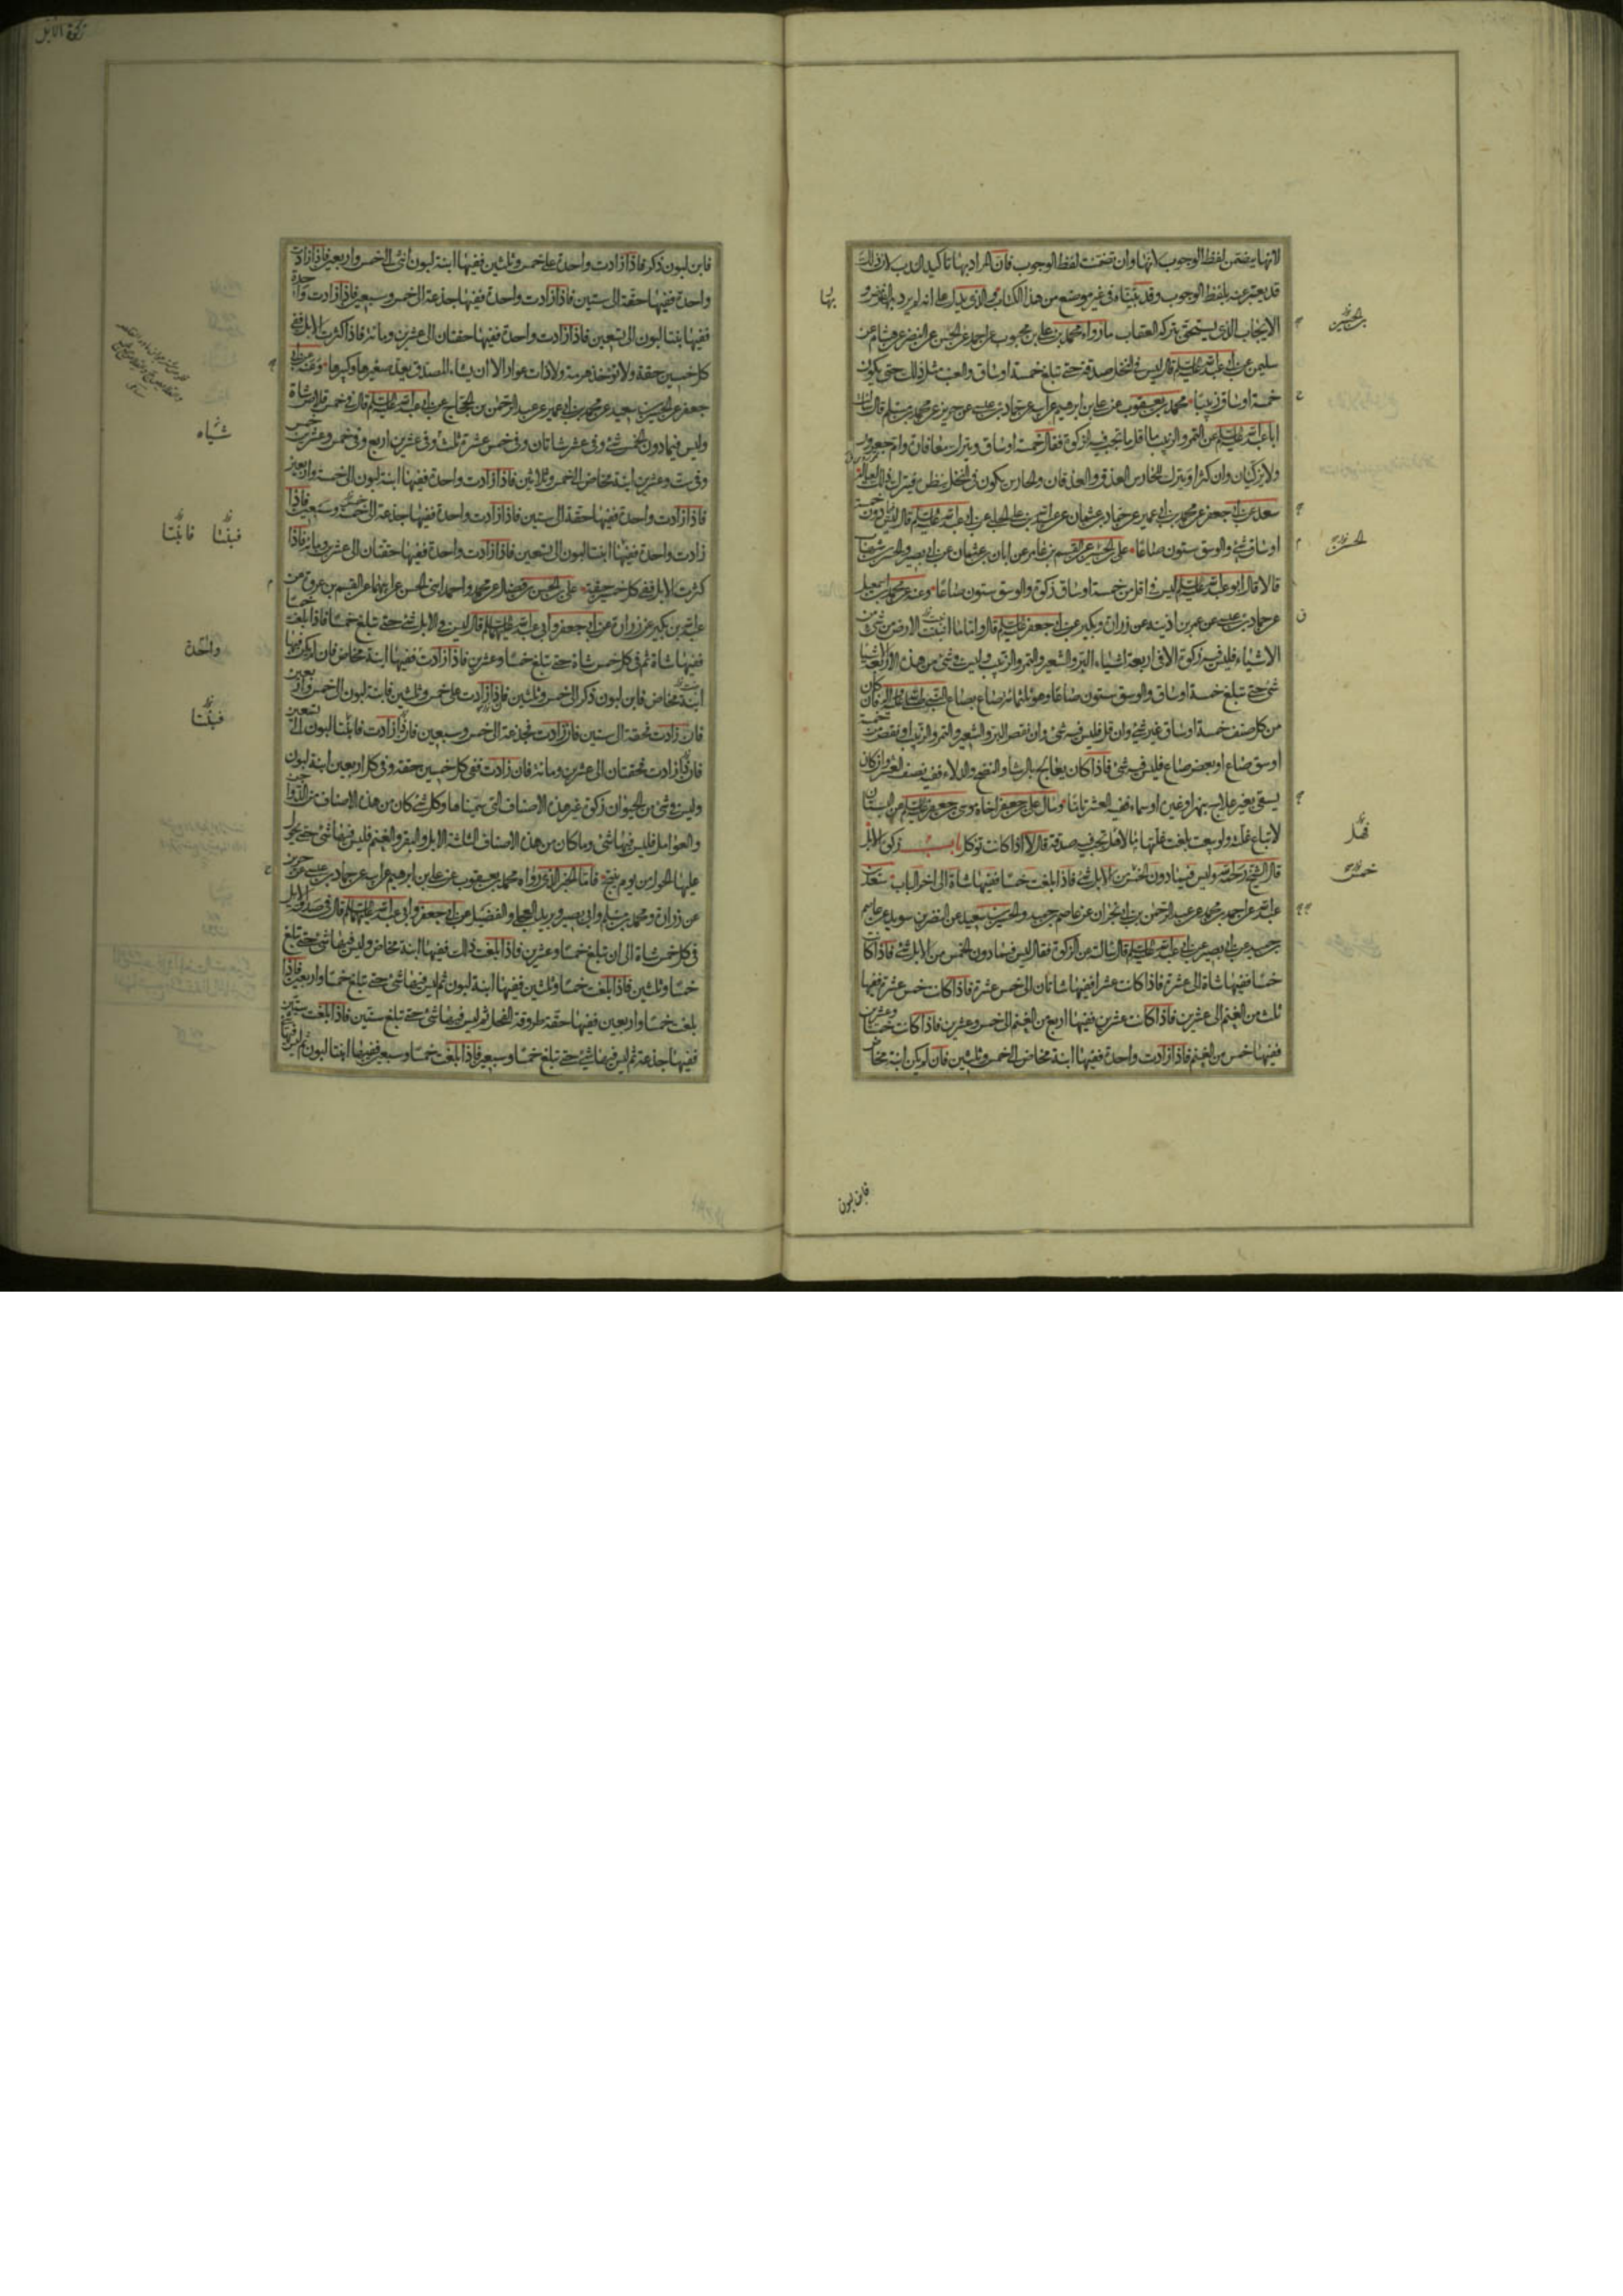 لانها يتضمن لفظ الوجوب لانها وان تضمنت لفظ الوجوب فان المراد بها تأكيد الندب لان ذلك
قد يعبر عنه بلفظ الوجوب وقد بيناه في غير موضع من هذا الكتاب والذي يدل على انه لم يرد بها الفرض و
بها
الايجاب الذي يستحق بتركه العقاب ما رواه محمد بن علي بن محبوب عن احمد عن الحسن عن النضر عن هشام عن
بن الحسين
سليمن عن ابي عبد الله عليه السلم قال ليس في النخل صدقة حتى تبلغ خمسة اوساق والعنب مثل ذلك حتى يكون
خمسة اوساق زبيبا محمد بن يعقوب عن علي بن ابرهيم عن ابيه عن حماد بن عيسى عن حريز عن محمد بن مسلم قال سالت
ابا عبد الله عليه السلم عن التمر والزبيب ما اقل ما تجب فيه الزكوة فقال خمسة اوساق ويترك معافاره وام جعرور
ولا يزكيان وان كثرا ويترك للحارس العذق والعذقان والحارس يكون في النخل ينظره فيترك ذلك لعياله
سعد عن ابي جعفر عن محمد بن ابي عمير عن حماد بن عثمان عن عبيد الله بن علي الحلبي عن ابي عبد الله عليه السلم قال ليس فيما دون خمسة
اوساق شئ والوسق ستون صاعا علي بن الحسن عن القسم بن عامر عن ابان بن عثمان عن ابي بصير والحسن بن شهاب
الحسن
قالا قال ابو عبد الله عليه السلم ليس في اقل من خمسة اوساق زكوة والوسق ستون صاعا وعنه عن محمد بن اسمعيل
عن حماد بن عيسى عن عمر بن اذينه عن زرارة وبكير عن ابي جعفر عليه السلم قال واما ما انبتت الارض من شئ من
الاشياء فليس فيه زكوة الا في اربعة اشياء البر والشعير والتمر والزبيب وليس في شئ من هذه الاربعة الاشيا
شئ حتى تبلغ خمسة اوساق والوسق ستون صاعا وهو ثلثمائة صاع بصاع النبي صلى الله عليه واله فان كان
من كل صنف خمسة اوساق غير شئ وان قل فليس فيه شئ وان نقص البر والشعير والتمر والزبيب او نقص من خمسة
اوسق صاع او بعض صاع فليس فيه شئ فاذا كان يعالج بالرشا والنضح والدلاء ففيه نصف العشر وان كان
يسقى بغير علاج بنهر او غيره او سماء ففيه العشر تاما وسال علي بن جعفر اخاه موسى بن جعفر عليه السلم عن البستان
لا تباع غلته ولو بيعت بلغت غلتها مالا فهل تجب فيه صدقة قال لا اذا كانت توكل باب زكوة الابل
فهل
قال الشيخ رحمه الله وليس فيما دون الخمس من الابل شئ فاذا بلغت خمسا ففيها شاة الى اخر الباب سعد بن
خمس
عبد الله عن احمد بن محمد عن عبد الرحمن بن ابي نجران عن عاصم بن حميد والحسين بن سعيد عن النضر بن سويد عن عاصم
بن حميد عن ابي بصير عن ابي عبد الله عليه السلم قال سالته عن الزكوة فقال ليس فيما دون الخمس من الابل شئ فاذا كانت
خمسا ففيها شاة الى عشرة فاذا كانت عشرا ففيها شاتان الى خمس عشرة فاذا كانت خمس عشرة ففيها
ثلث من الغنم الى عشرين فاذا كانت عشرين ففيها اربع من الغنم الى خمس وعشرين فاذا كانت خمسا وعشرين
ففيها خمس من الغنم فاذا زادت واحدة ففيها ابنة مخاض الى خمس وثلثين فان لم يكن ابنة مخاض
فابن لبون
زكوة الابل
فابن لبون ذكر فاذا زادت واحدة على خمس وثلثين ففيها ابنة لبون انثى الى خمس واربعين فاذا زادت
واحدة ففيها حقة الى ستين فاذا زادت واحدة ففيها جذعة الى خمس وسبعين فاذا زادت واحدة
ففيها بنتا لبون الى تسعين فاذا زادت واحدة ففيها حقتان الى عشرين ومائة فاذا كثرت الابل ففي
كل خمسين حقة ولا تؤخذ هرمة ولا ذات عوار الا ان يشاء المصدق يعد صغيرها وكبيرها وعنه عن ابي
جعفر عن الحسين بن سعيد عن محمد بن ابي عمير عن عبد الرحمن بن الحجاج عن ابي عبد الله عليه السلم قال في خمس قلايص شاة
وليس فيما دون الخمس شئ وفي عشر شاتان وفي خمس عشرة ثلث وفي عشرين اربع وفي خمس وعشرين خمس
شياه
وفي ست وعشرين ابنة مخاض الى خمس وثلاثين فاذا زادت واحدة ففيها ابنة لبون الى خمسة واربعين
فاذا زادت واحدة ففيها حقة الى ستين فاذا زادت واحدة ففيها جذعة الى خمسة وسبعين فاذا
زادت واحدة ففيها ابنتا لبون الى تسعين فاذا زادت واحدة ففيها حقتان الى عشرين ومائة فاذا
فبنتا فابنتا
كثرت الابل ففي كل خمسين حقة علي بن الحسن بن فضال عن محمد واحمد ابني الحسن عن ابيهما عن القسم بن عروة عن
عبد الله بن بكير عن زرارة عن ابي جعفر وابي عبد الله عليهما السلم قال ليس في الابل شئ حتى تبلغ خمسا فاذا بلغت خمسا
ففيها شاة ثم في كل خمس شاة حتى تبلغ خمسا وعشرين فاذا زادت ففيها ابنة مخاض فان لم يكن فيها
واحدة
ابنة مخاض فابن لبون ذكر الى خمس وثلثين فاذا زادت على خمس وثلثين فابنة لبون الى خمس واربعين
فان زادت فحقة الى ستين فان زادت فجذعة الى خمس وسبعين فان زادت فابنتا لبون الى تسعين
فبنتا
فان زادت فحقتان الى عشرين ومائة فان زادت ففي كل خمسين حقة وفي كل اربعين ابنة لبون
وليس في شئ من الحيوان زكوة غير هذه الاصناف التي سمينا وكل شئ كان من هذه الاصناف من الدواجن
والعوامل فليس فيها شئ وما كان من هذه الاصناف الثلثة الابل والبقر والغنم فليس فيها شئ حتى يحول
عليها الحول من يوم ينتج فاما الخبر الذي رواه محمد بن يعقوب عن علي بن ابرهيم عن ابيه عن حماد بن عيسى عن حريز
عن زرارة ومحمد بن مسلم وابي بصير وبريد العجلي والفضيل عن ابي جعفر وابي عبد الله عليهما السلم قال في صدقة الابل
في كل خمس شاة الى ان تبلغ خمسا وعشرين فاذا بلغت ذلك ففيها ابنة مخاض وليس فيها شئ حتى تبلغ
خمسا وثلثين فاذا بلغت خمسا وثلثين ففيها ابنة لبون ثم ليس فيها شئ حتى تبلغ خمسا واربعين فاذا
بلغت خمسا واربعين ففيها حقة طروقة الفحل ثم ليس فيها شئ حتى تبلغ ستين فاذا بلغت ستين
ففيها جذعة ثم ليس فيها شئ حتى تبلغ خمسا وسبعين فاذا بلغت خمسا وسبعين ففيها ابنتا لبون ثم ليس فيها شئ